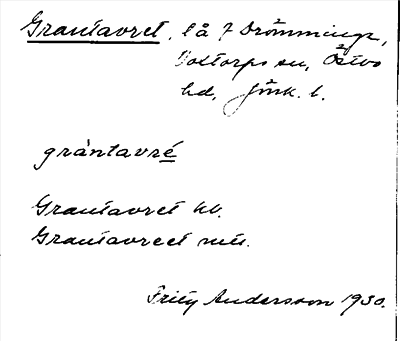 Grantavret, lå f Drömminge,
Voltorps sn, Östbo
hd, Jönk. l.
gràntavré
Grantavret kb.
Grantavreet mtl.
Fritz Andersson 1930.